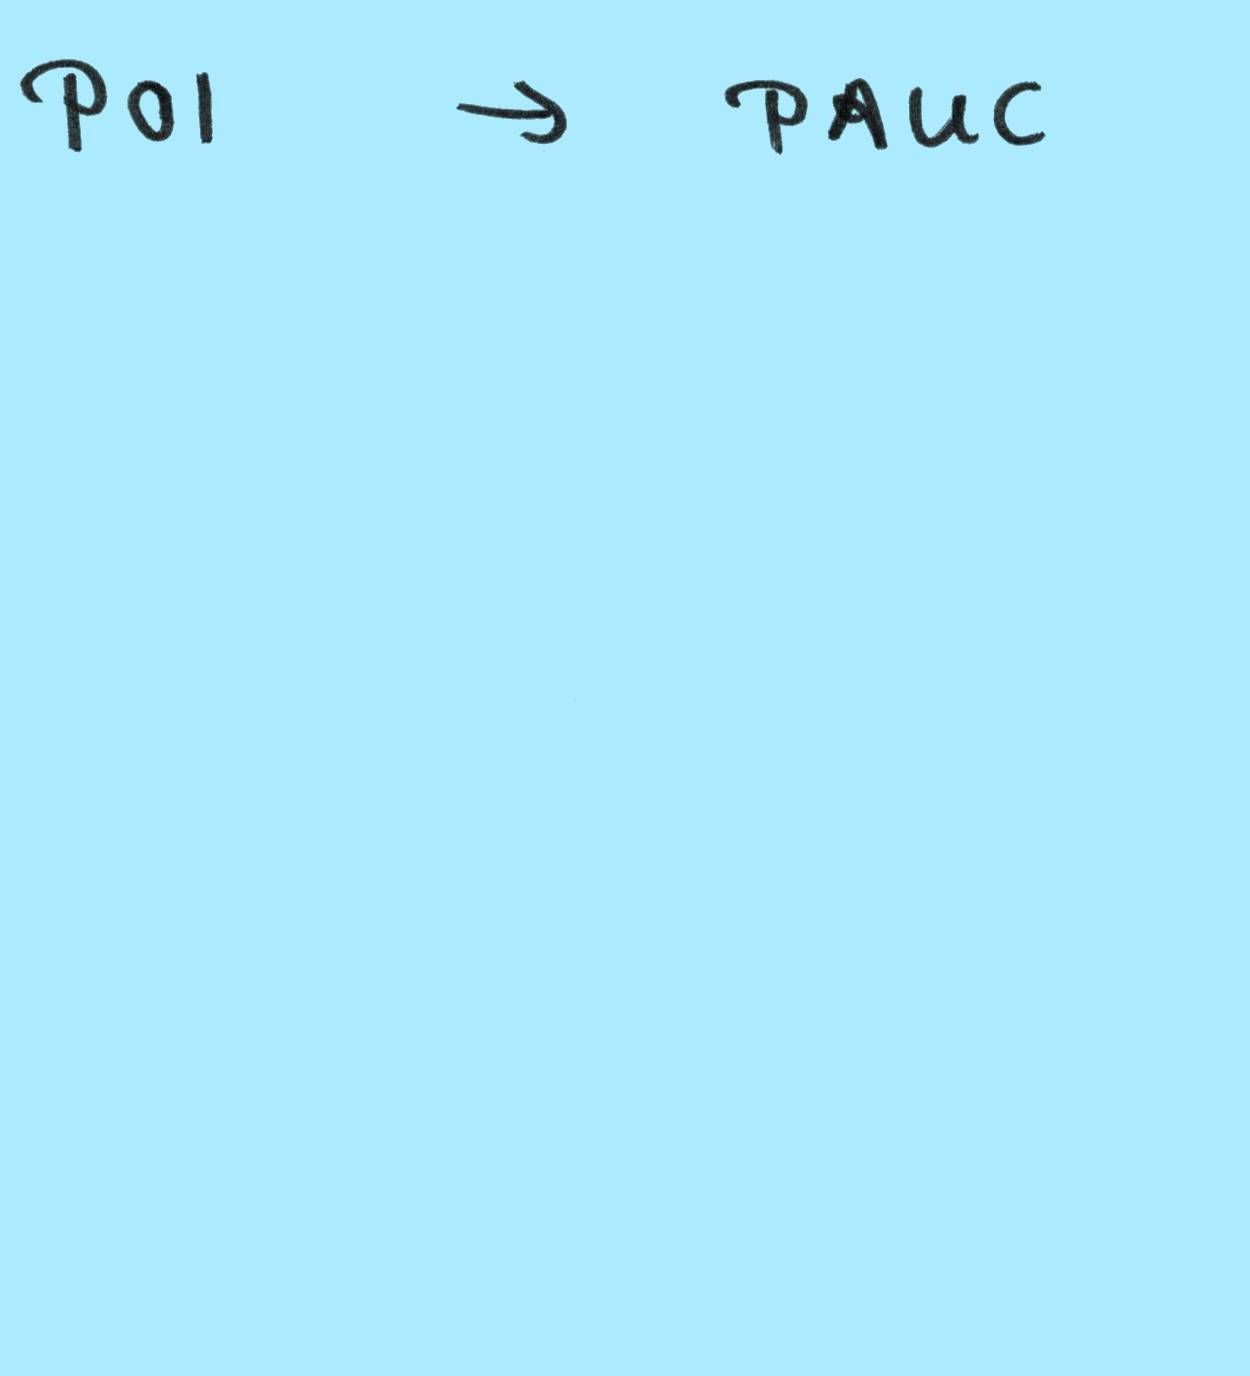 POI → PAUC